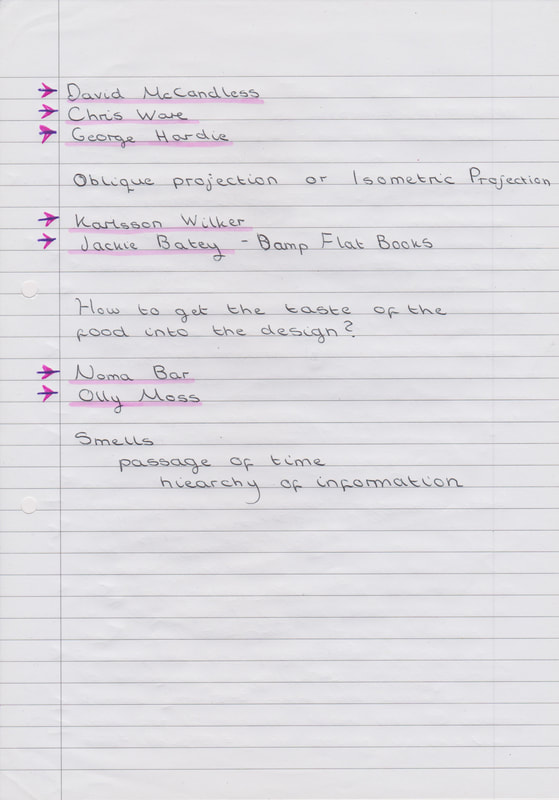 David McCandless
Chris Ware
George Hardie
Oblique projection or Isometric Projection
Karlsson Wilker
Jackie Batey - Damp Flat Books
How to get the taste of the
food into the design?
Noma Bar
Olly Moss
Smells
passage of time
hiearchy of information